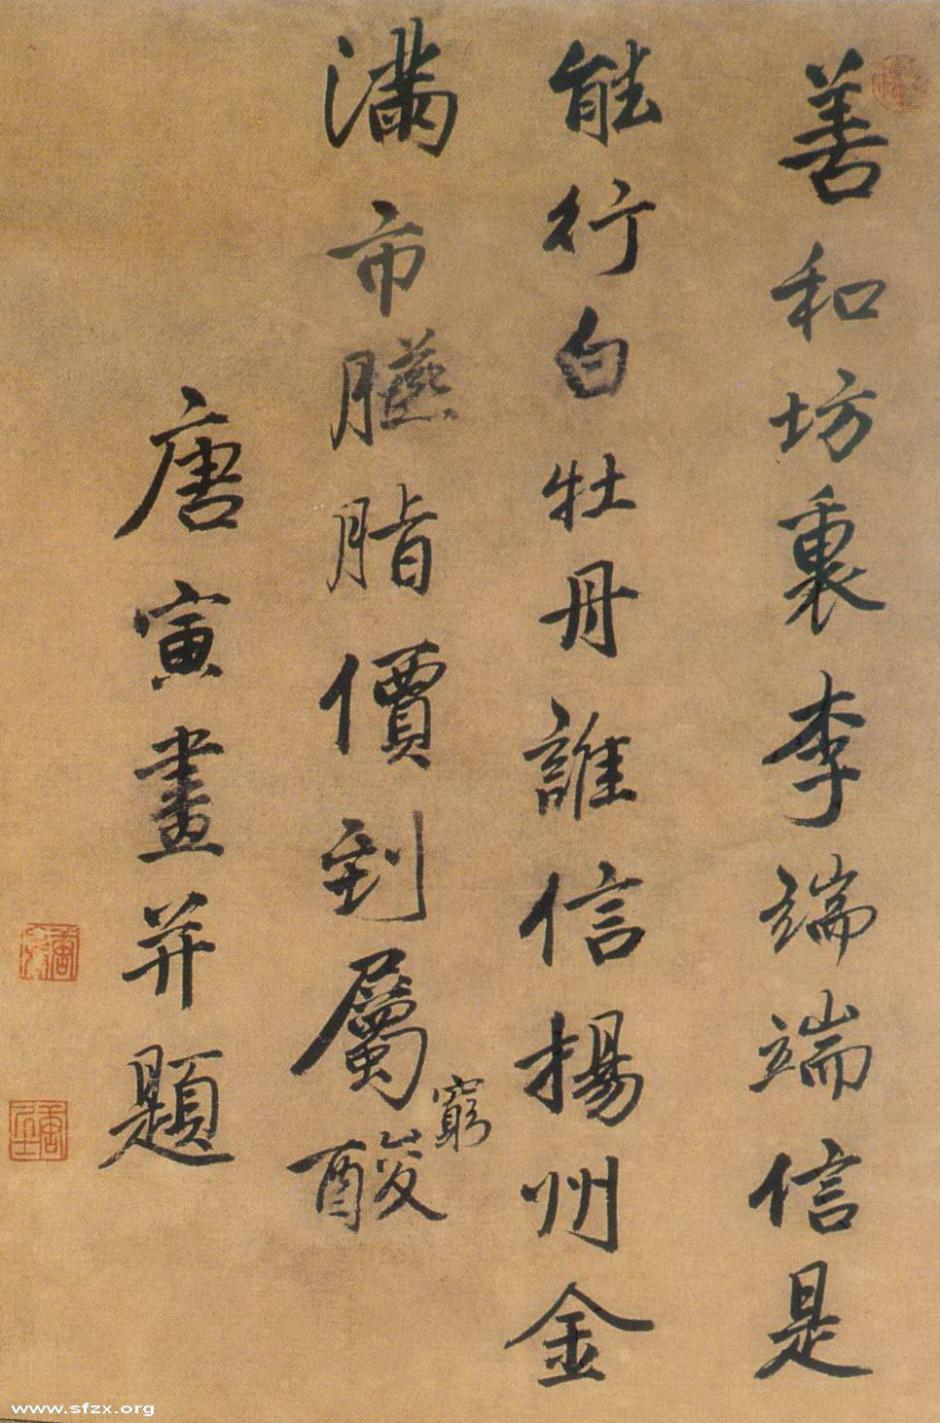 善和坊裏李端端信是
能行白牡丹誰信揚州金
滿市臙脂價到屬酸
窮
唐寅畫并題
www.sfzx.org